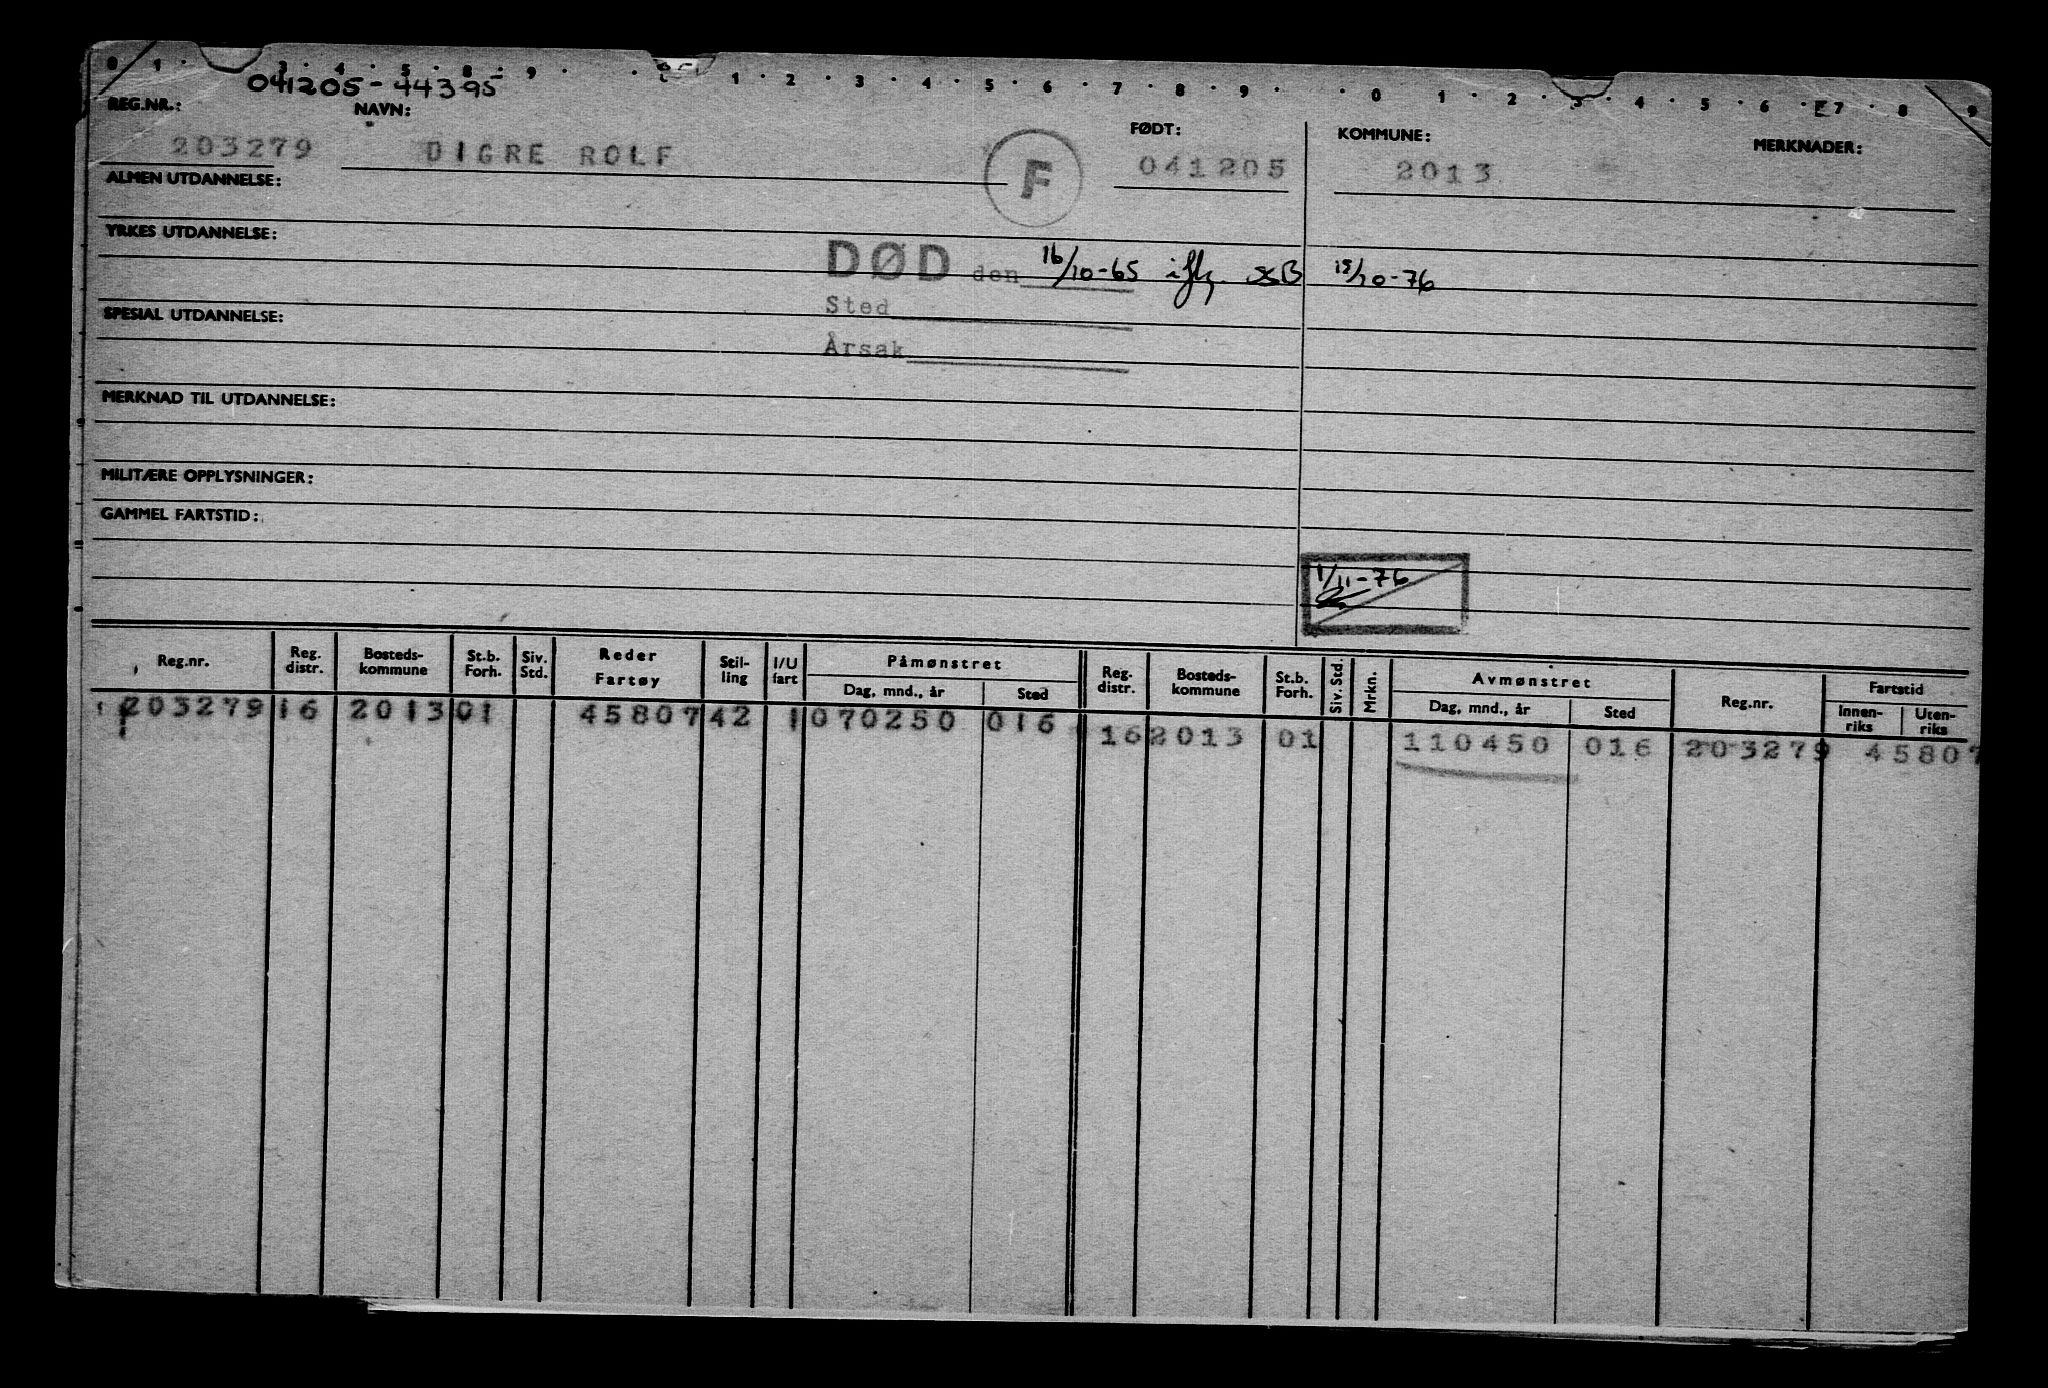 0 1 · 3 · 4 · 5 · 8 · 9 · · 1 · 2 · 3 · 4 · 5 · 6 · 7 · 8 · 9 · · 0 · 1 · 2 · 3 · 4 · 5 · 6 · E7 · 8 · 9
041205-44395
REG.NR.: NAVN: FØDT: KOMMUNE: MERKNADER:
203279 DIGRE ROLF F 041205 2013
ALMEN UTDANNELSE:
YRKES UTDANNELSE:
DØD den 16/10-65 iflg. 15/10-76
Sted
SPESIAL UTDANNELSE:
Årsak
MERKNAD TIL UTDANNELSE:
MILITÆRE OPPLYSNINGER:
GAMMEL FARTSTID:
1/11-76
Reg.nr. Reg. distr. Bosteds-kommune St.b. Forh. Siv. Std. Reder Fartøy Stil-ling I/U fart Påmønstret Dag, mnd., år Sted Reg. distr. Bosteds-kommune St.b. Forh. Siv. Std. Mrkn. Avmønstret Dag, mnd., år Sted Reg.nr. Fartstid Innen-riks Uten-riks
203279 16 2013 01 45807 42 1 070250 016 16 2013 01 110450 016 203279 45807